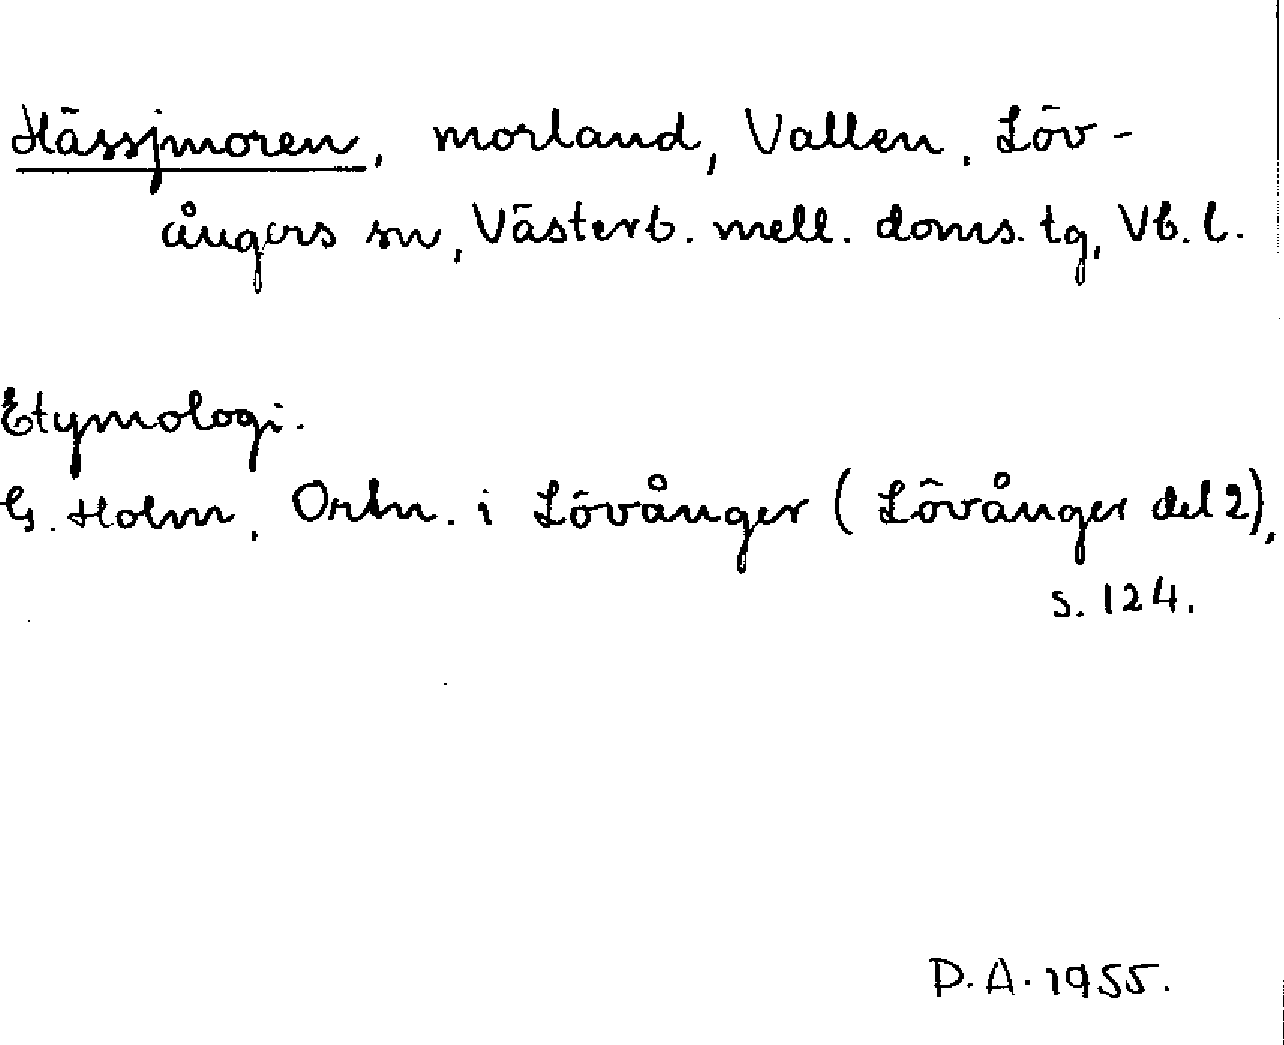 Hässjmoren, morland, Vallen, Löv-
ångers sn, Västerb. mell. doms. tg, Vb. l.
Etymologi.
G. Holm, Ortn. i Lövånger (Lövånger del 2),
s. 124.
D. A. 1955.